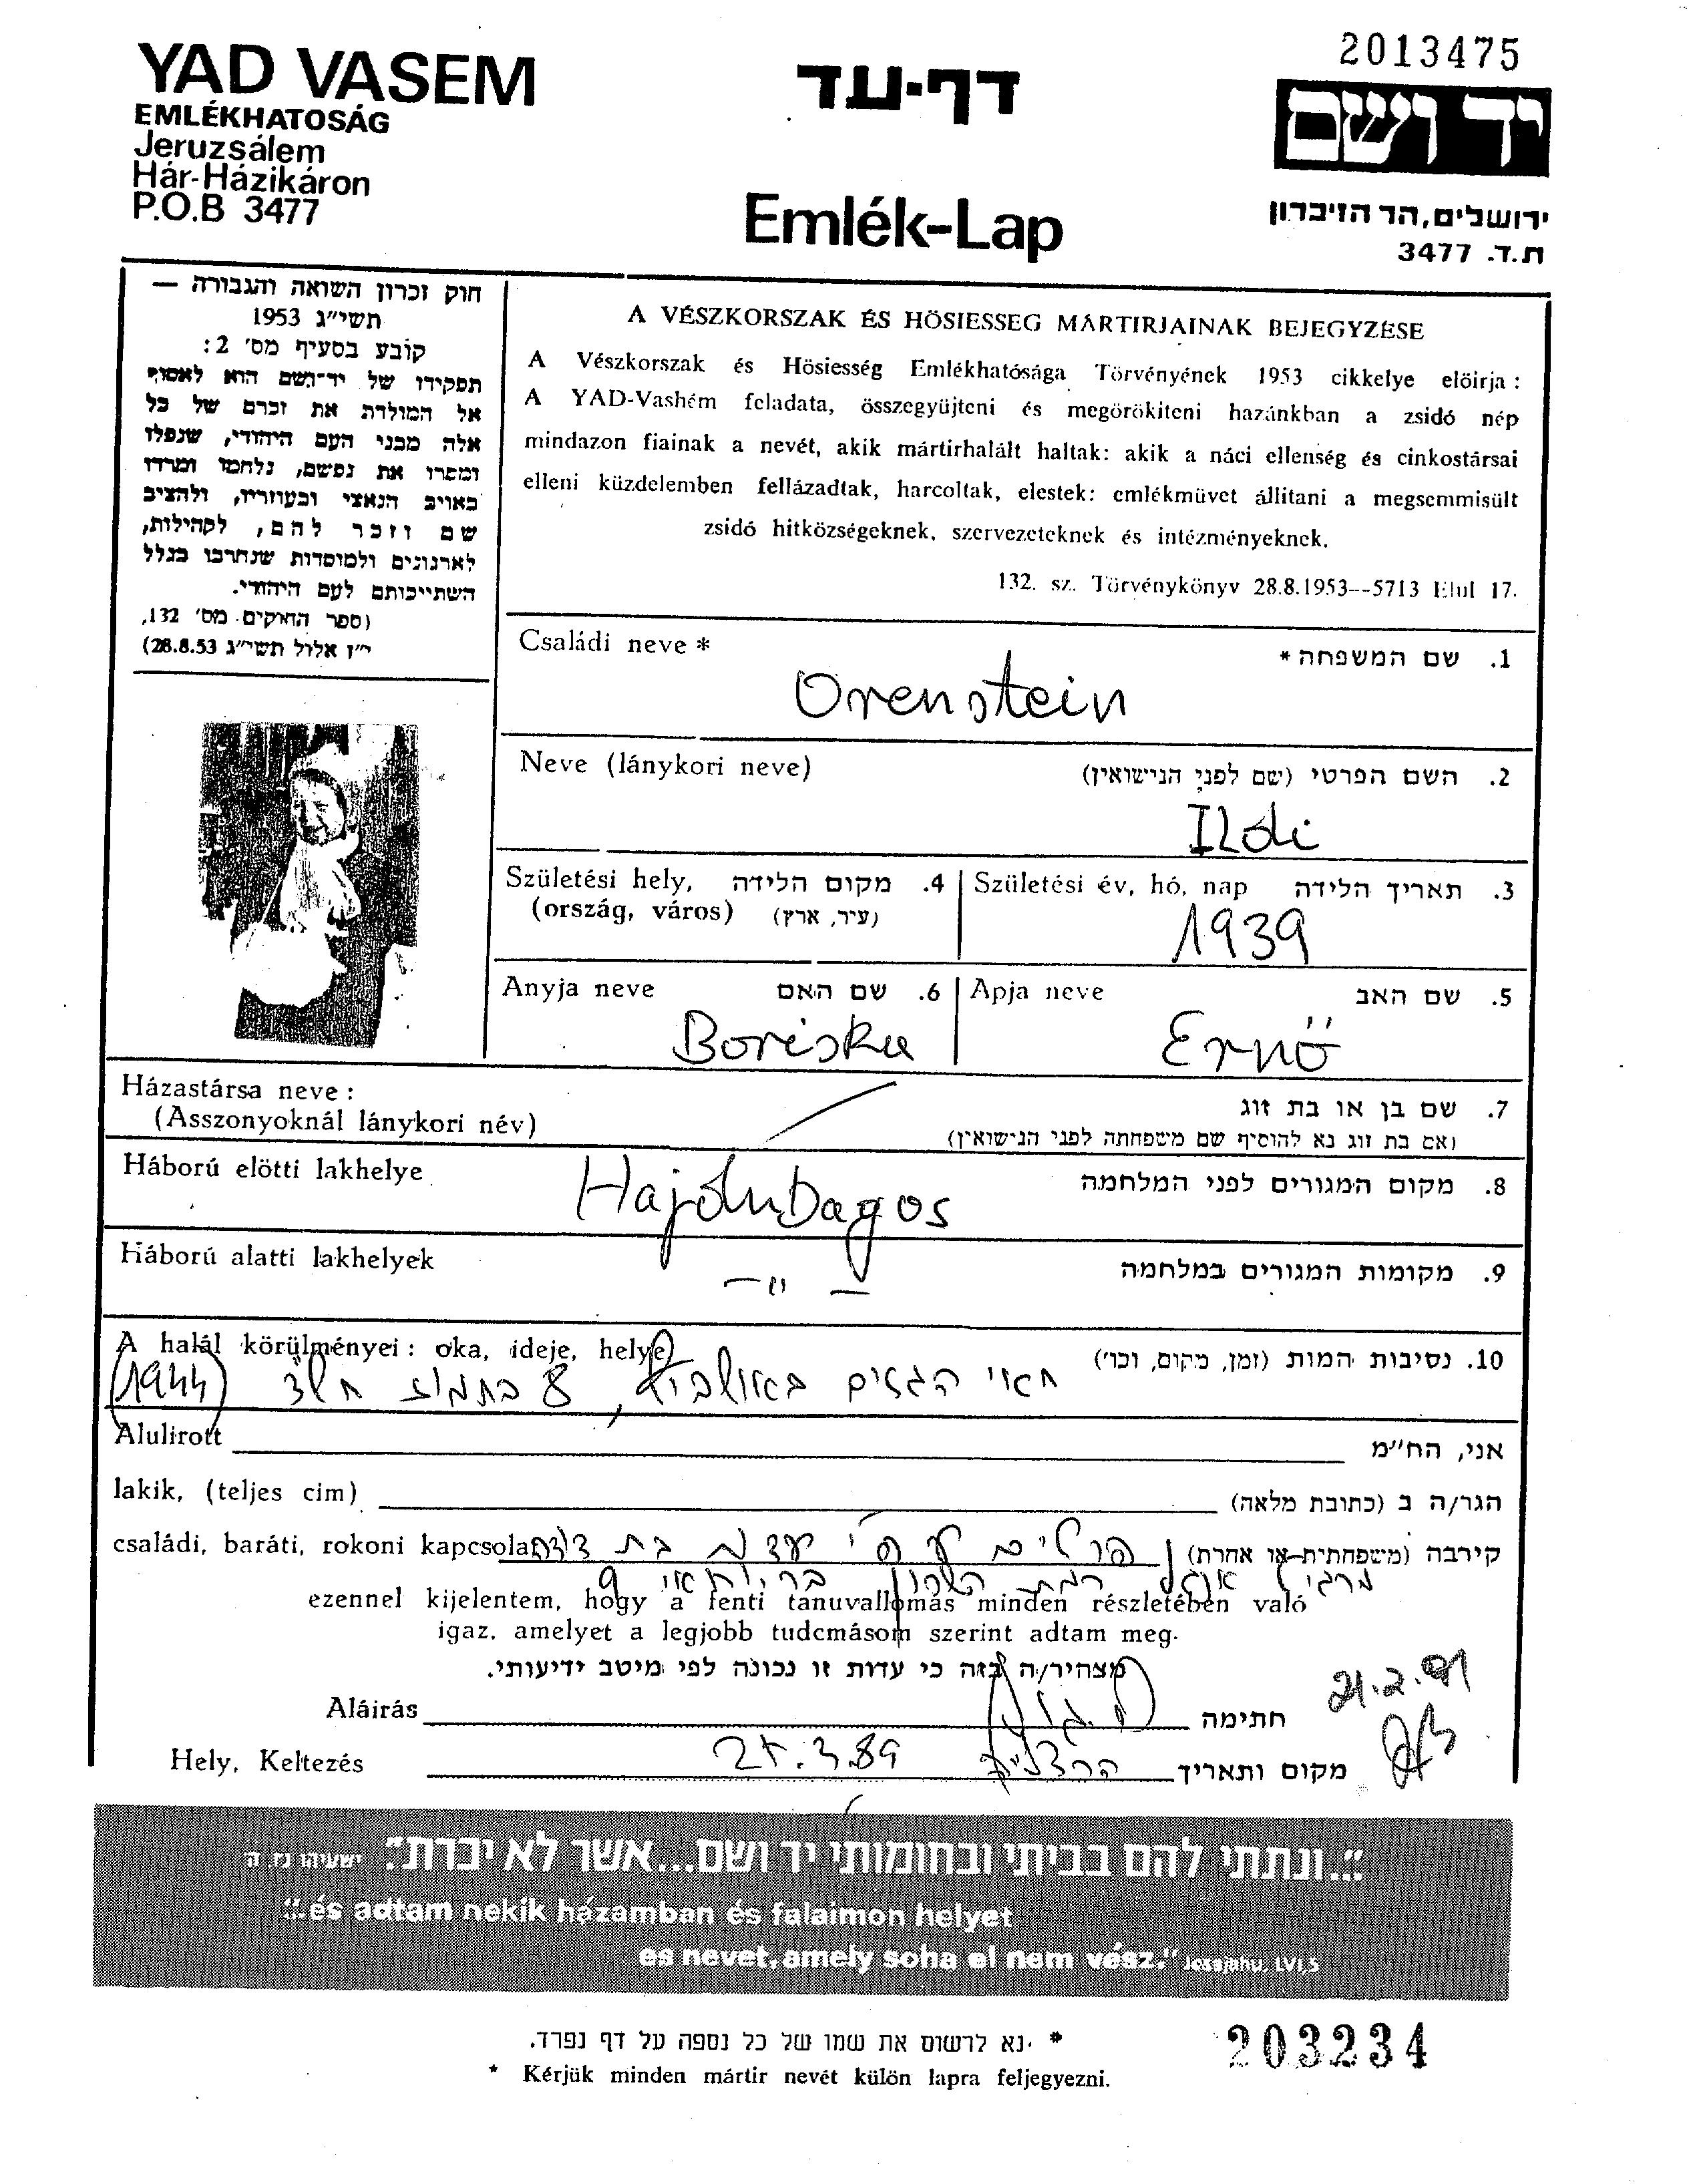 2013475
YAD VASEM
EMLÉKHATOSÁG
Jeruzsálem
Hár-Házikáron
P.O.B 3477
דף-עד
Emlék-Lap
יד ושם
ירושלים, הר הזיכרון
ת.ד. 3477
חוק זכרון השואה והגבורה —
תשי"ג 1953
קובע בסעיף מס' 2:
תפקידו של יד-ושם הוא לאסוף
אל המולדת את זכרם של כל
אלה מבני העם היהודי, שנפלו
ומסרו את נפשם, נלחמו ומרדו
באויב הנאצי ובעוזריו, ולהציב
שם וזכר להם, לקהילות,
לארגונים ולמוסדות שנחרבו בגלל
השתייכותם לעם היהודי.
(ספר החוקים מס' 132,
י"ז אלול תשי"ג 28.8.53)
A VÉSZKORSZAK ÉS HÖSIESSEG MÁRTIRJAINAK BEJEGYZÉSE
A Vészkorszak és Hösiesség Emlékhatósága Törvényének 1953 cikkelye elöirja:
A YAD-Vashém feladata, összegyüjteni és megörökiteni hazánkban a zsidó nép
mindazon fiainak a nevét, akik mártirhalált haltak: akik a náci ellenség és cinkostársai
elleni küzdelemben fellázadtak, harcoltak, elestek: emlékmüvet állitani a megsemmisült
zsidó hitközségeknek, szervezeteknek és intézményeknek.
132. sz. Törvénykönyv 28.8.1953--5713 Elul 17.
Családi neve * 1. שם המשפחה *
Orenstein
Neve (lánykori neve) 2. השם הפרטי (שם לפני הנישואין)
Ildi
Születési hely, 4. מקום הלידה
(ország, város) (עיר, ארץ)
Születési év, hó, nap 3. תאריך הלידה
1939
Anyja neve 6. שם האם
Boriska
Apja neve 5. שם האב
Ernö
Házastársa neve: 7. שם בן או בת זוג
(Asszonyoknál lánykori név) (אם בת זוג נא להוסיף שם משפחתה לפני הנישואין)
Háború elötti lakhelye 8. מקום המגורים לפני המלחמה
Hajdubagos
Háború alatti lakhelyek 9. מקומות המגורים במלחמה
— " —
A halál körülményei: oka, ideje, helye) 10. נסיבות המות (זמן, מקום, וכו')
הגזים באושביץ, בתמוז (1944)
Alulirott אני, הח"מ
lakik, (teljes cim) הגר/ה ב (כתובת מלאה)
családi, baráti, rokoni kapcsola קירבה (משפחתית או אחרת)
בת דודה
ezennel kijelentem, hogy a fenti tanuvallomás minden részletében való
igaz, amelyet a legjobb tudomásom szerint adtam meg.
מצהיר/ה בזה כי עדות זו נכונה לפי מיטב ידיעותי.
Aláirás חתימה
21.2.91
Hely, Keltezés מקום ותאריך הרצליה
"...ונתתי להם בביתי ובחומותי יד ושם...אשר לא יכרת" ישעיהו נו. ה
"..és adtam nekik házamban és falaimon helyet
es nevet, amely soha el nem vész." Jesajahu, LVI,5
* נא לרשום את שמו של כל נספה על דף נפרד.
* Kérjük minden mártir nevét külön lapra feljegyezni.
203234